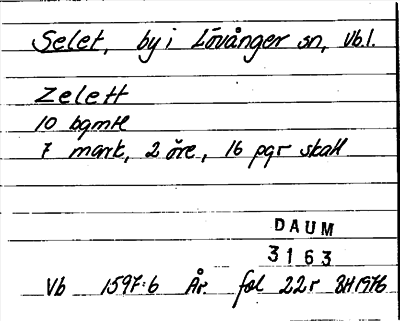 Selet, by i Lövånger sn, Vb.l.
Zelett
10 bgmtl
7 mark, 2 öre, 16 pgr skatt
DAUM
3163
Vb 1597:6 År. fol 22r BH 1976